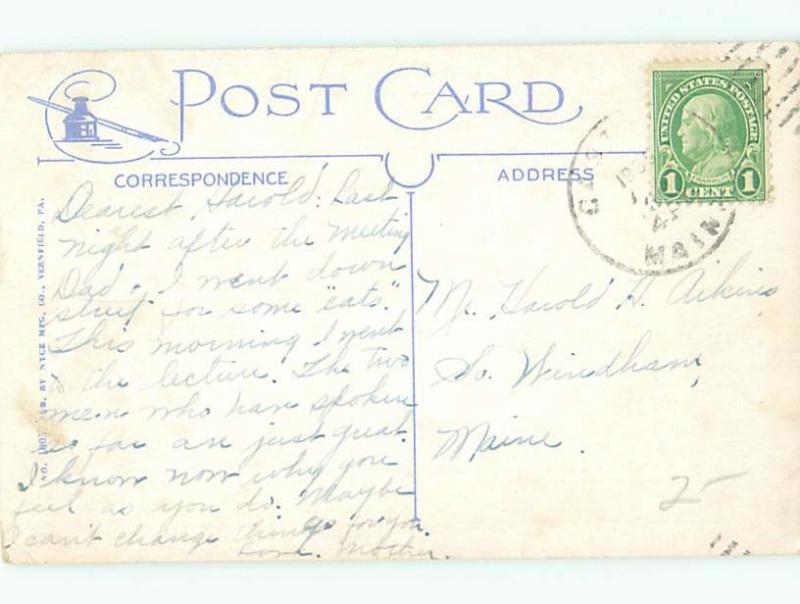 POST CARD
CORRESPONDENCE
ADDRESS
UNITED STATES POSTAGE
FRANKLIN
1 CENT 1
MAINE
Dearest Harold: Last
night after the meeting
Dad & I went down
street for some "eats".
This morning I went
to the lecture. The two
men who have spoken
so far are just great.
I know now why you
feel as you do. Maybe
I can't change things for you.
Love, Mother.
Mr. Harold G. Aikins
So. Windham,
Maine.
2
BY NYCE MFG. CO., VERNFIELD, PA.